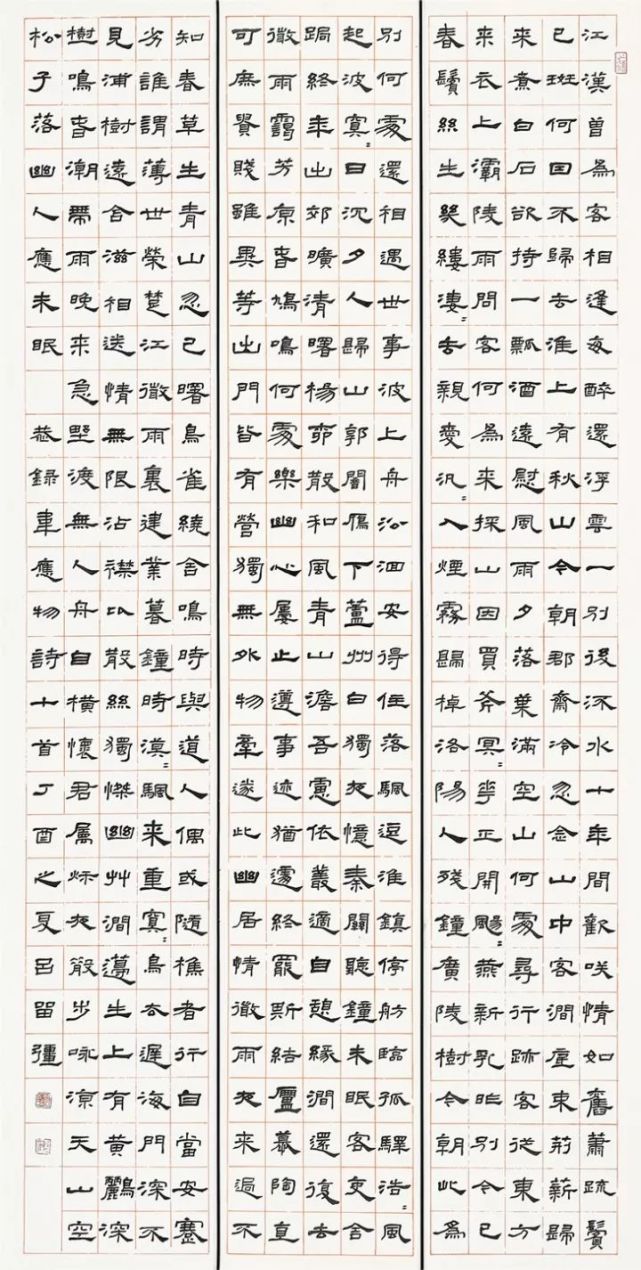 江漢曾為客相逢每醉還浮雲一別後流水十年間歡咲情如舊蕭疏鬢
已斑何因不歸去淮上有秋山今朝郡齋冷忽念山中客澗底束荊薪歸
來煮白石欲持一瓢酒遠慰風雨夕落葉滿空山何處尋行跡客從東方
来衣上灞陵雨問客何為来採山因買斧冥〻花正開颺〻燕新乳昨別今已
春鬢絲生幾縷凄〻去親愛汎〻入煙霧歸棹洛陽人殘鐘廣陵樹今朝此為
別何處還相遇世事波上舟沿洄安得住落颿逗淮鎮停舫臨孤驛浩〻風
起波冥〻日沉夕人歸山郭闇雁下蘆洲白獨夜憶秦關聽鐘未眠客吏舍
跼終年出郊曠清曙楊柳散和風青山澹吾慮依叢適自憩緣澗還復去
微雨靄芳原春鳩鳴何處樂幽心屢止遵事迹猶遽終罷斯結廬慕陶直
可庶貴賤雖異等出門皆有營獨無外物牽遂此幽居情微雨夜來過不
知春草生青山忽已曙鳥雀繞舍鳴時與道人偶或隨樵者行自當安蹇
劣誰謂薄世榮楚江微雨裏建業暮鐘時漠〻颿来重冥〻鳥去遲海門深不
見浦樹遠含滋相送情無限沾襟比散絲獨憐幽艸澗邊生上有黃鸝深
樹鳴春潮帶雨晚来急野渡無人舟自橫懷君屬秋夜散步咏涼天山空
松子落幽人應未眠 恭錄韋應物詩十首丁酉之夏呂留彊